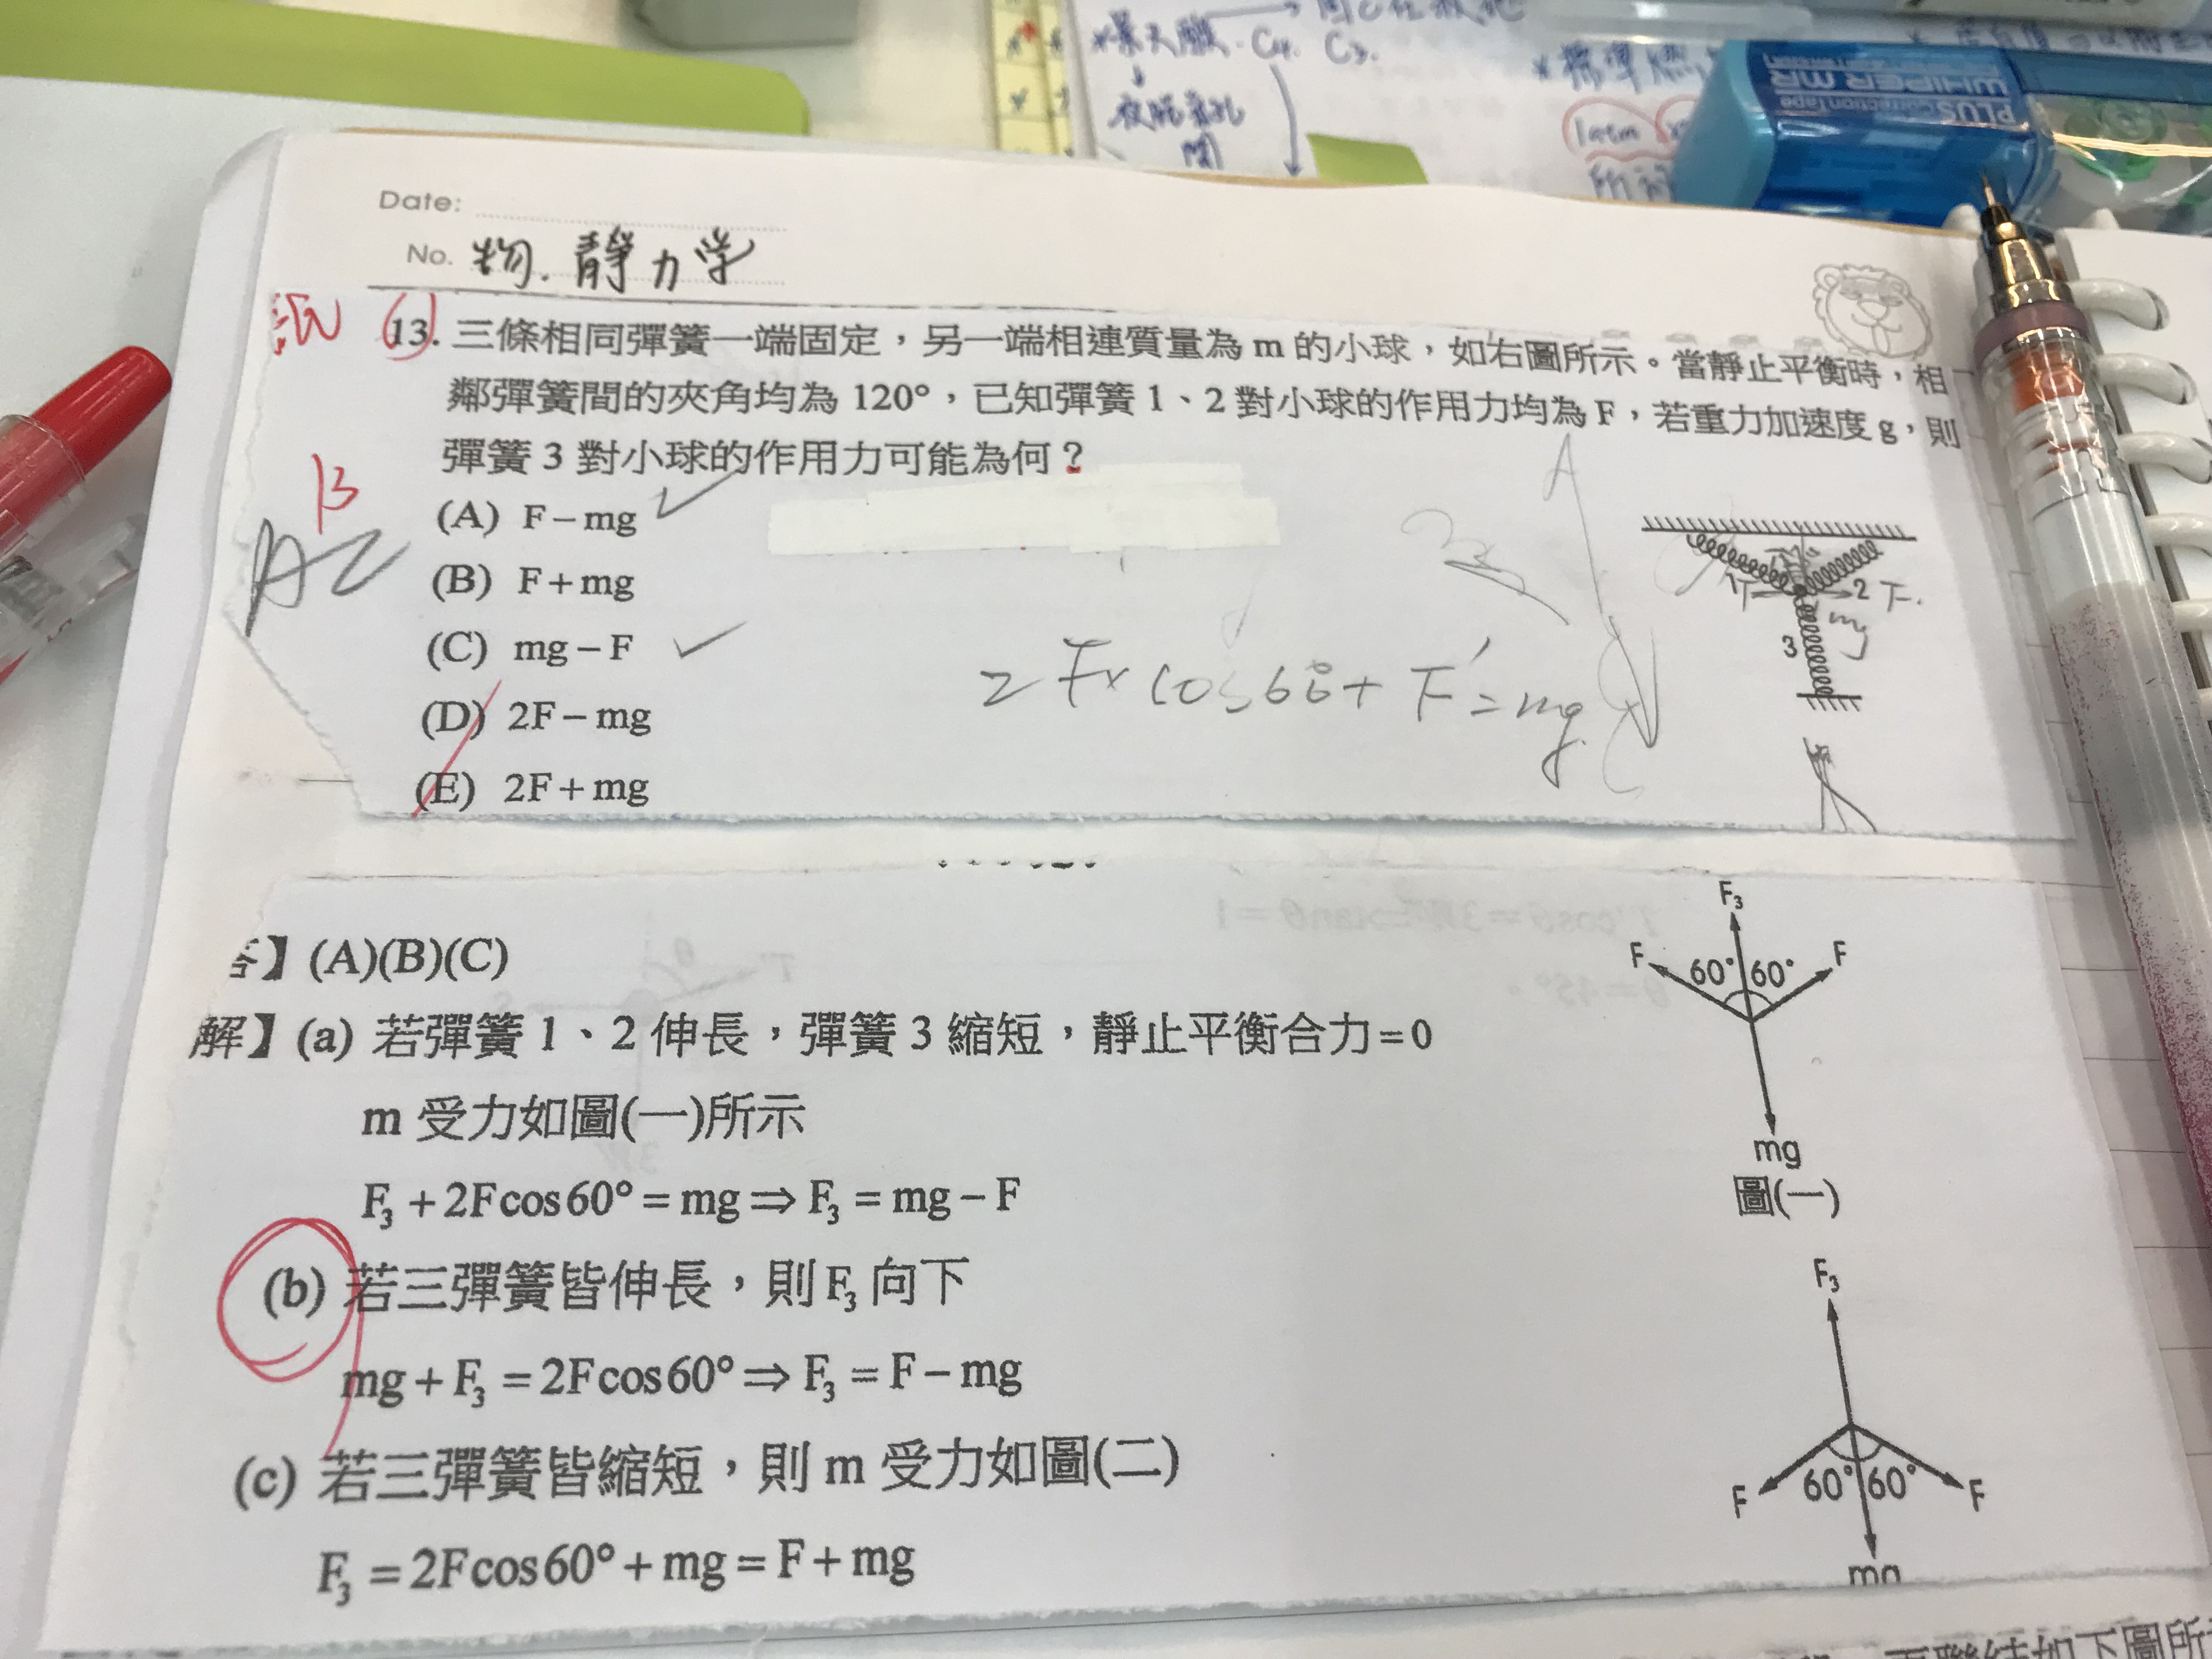 *景天酸 C4. C3.
夜晚氣孔
開
PLUS Correction Tape
WHIPER MR
1atm
Date:
No. 物. 靜力学
13. 三條相同彈簧一端固定，另一端相連質量為 m 的小球，如右圖所示。當靜止平衡時，相
鄰彈簧間的夾角均為 120°，已知彈簧 1、2 對小球的作用力均為 F，若重力加速度 g，則
彈簧 3 對小球的作用力可能為何？
B
AC
(A) F－mg
(B) F＋mg
(C) mg－F
(D) 2F－mg
(E) 2F＋mg
2F× cos60°+ F'=mg
1
2 F.
mg
3
答】(A)(B)(C)
解】(a) 若彈簧 1、2 伸長，彈簧 3 縮短，靜止平衡合力=0
m 受力如圖(一)所示
F₃ + 2Fcos60° = mg ⇒ F₃ = mg − F
(b) 若三彈簧皆伸長，則 F₃ 向下
mg + F₃ = 2Fcos60° ⇒ F₃ = F − mg
(c) 若三彈簧皆縮短，則 m 受力如圖(二)
F₃ = 2Fcos60° + mg = F + mg
F₃
F 60° 60° F
mg
圖(一)
F₃
F 60° 60° F
mg